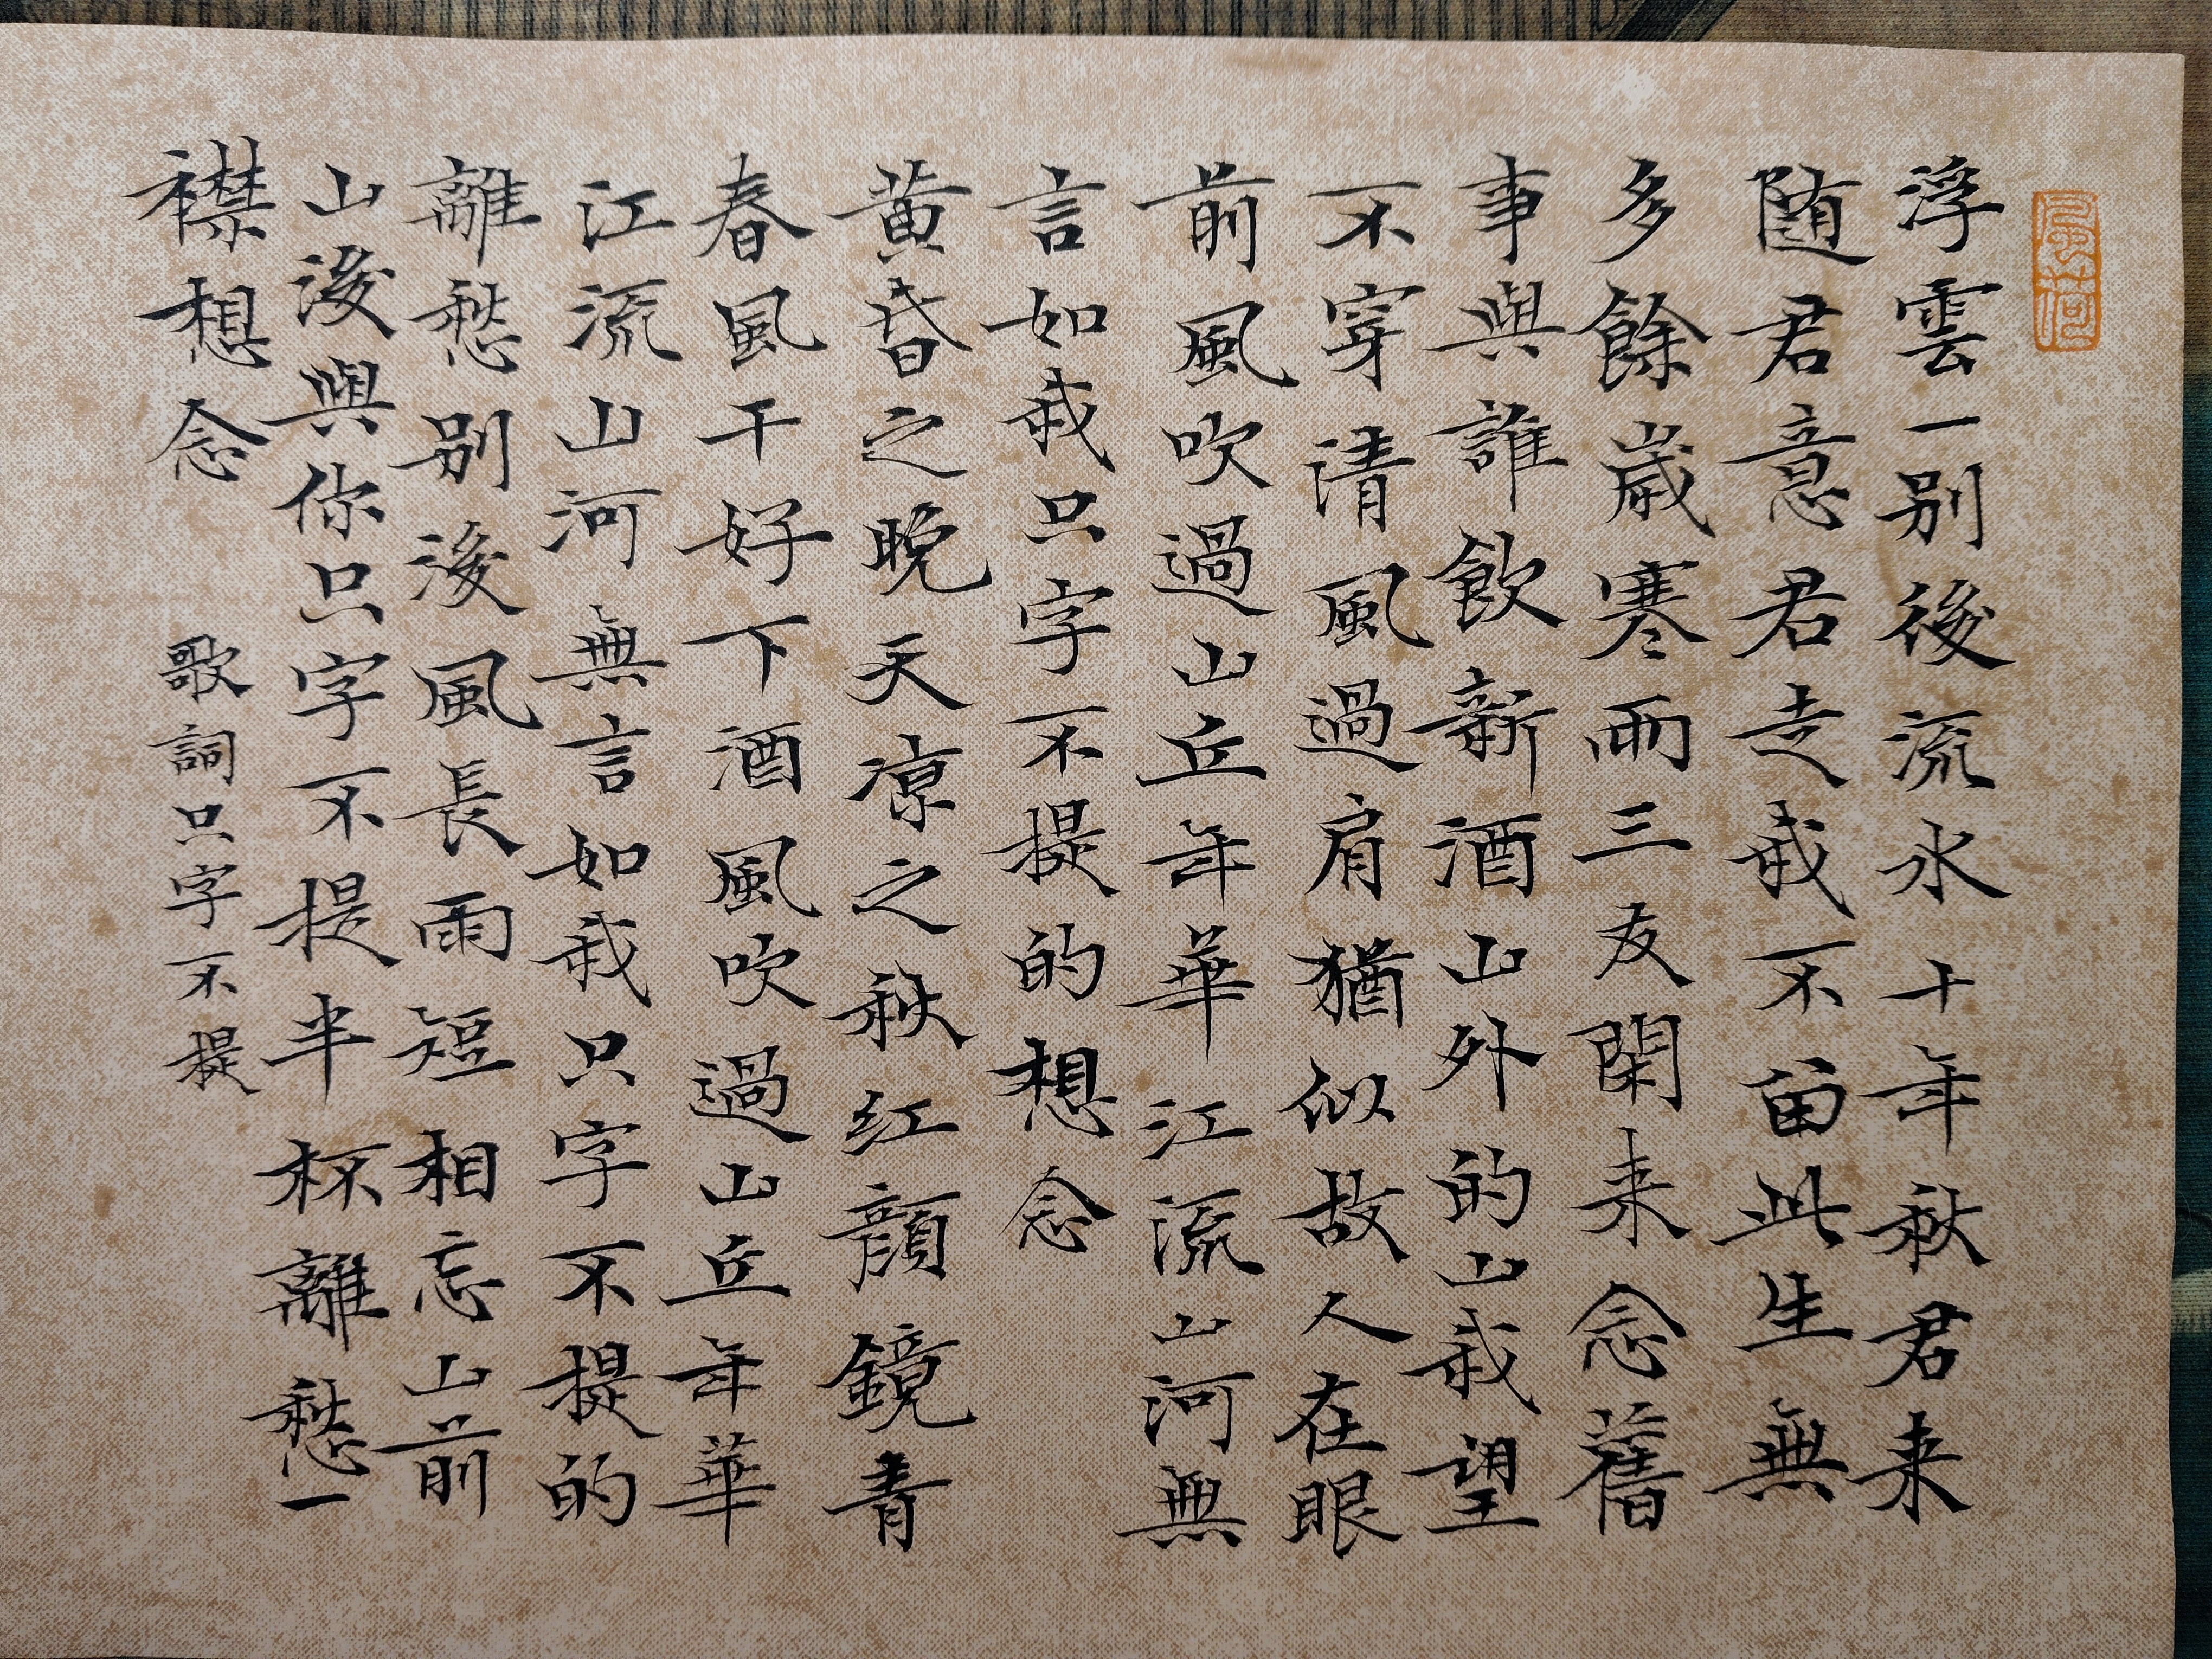 浮雲一别後流水十年秋君来
随君意君走我不留此生無
多餘歲寒雨三友閑来念舊
事與誰飲新酒山外的山我望
不穿清風過肩猶似故人在眼
前風吹過山丘年華江流山河無
言如我只字不提的想念
黄昏之晚天凉之秋红顏鏡青
春風干好下酒風吹過山丘年華
江流山河無言如我只字不提的
離愁别後風長雨短相忘山前
山後與你只字不提半杯離愁一
襟想念
歌詞只字不提